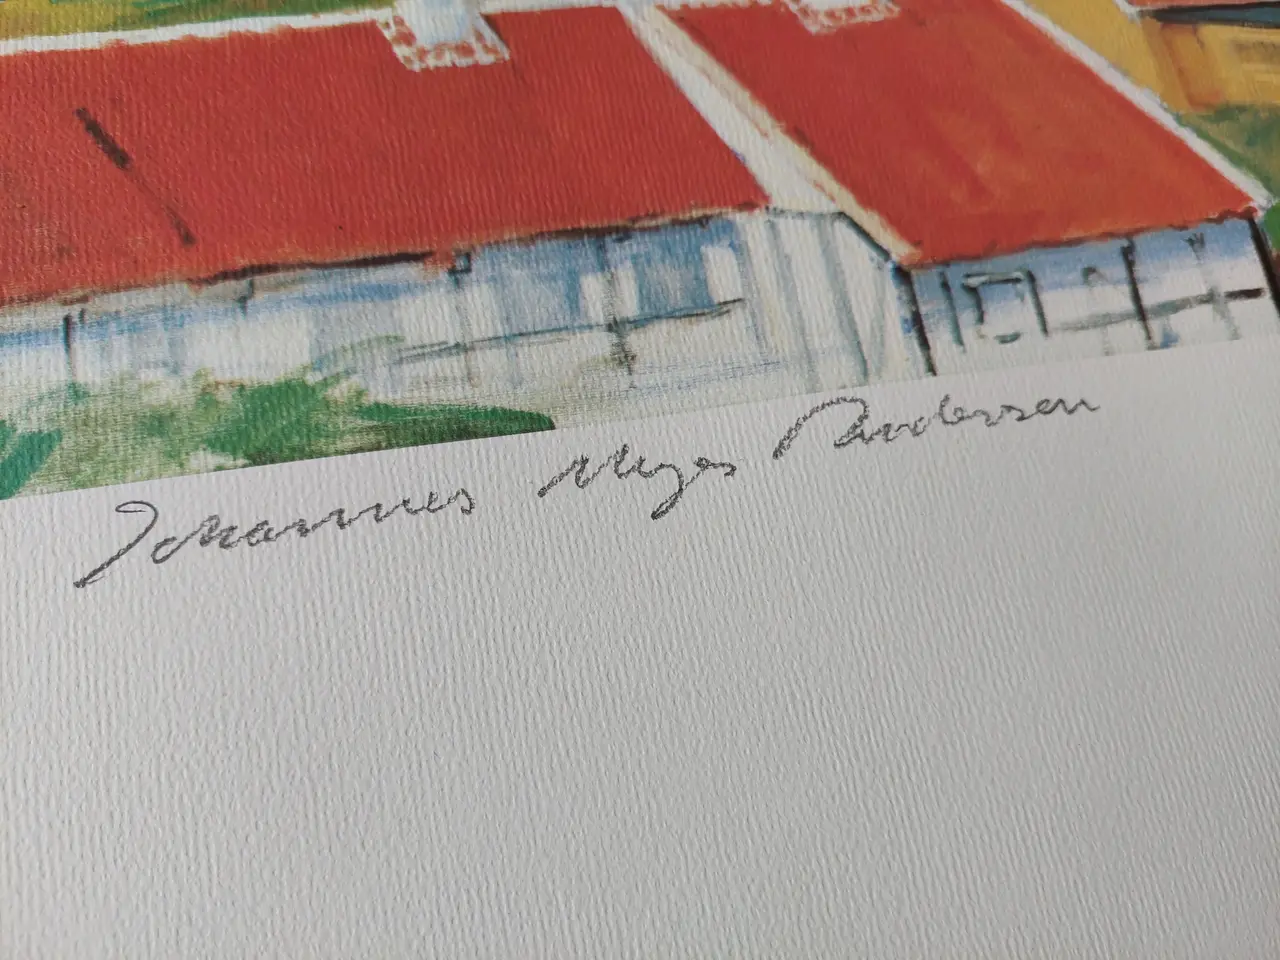 Johannes Meyer Andersen